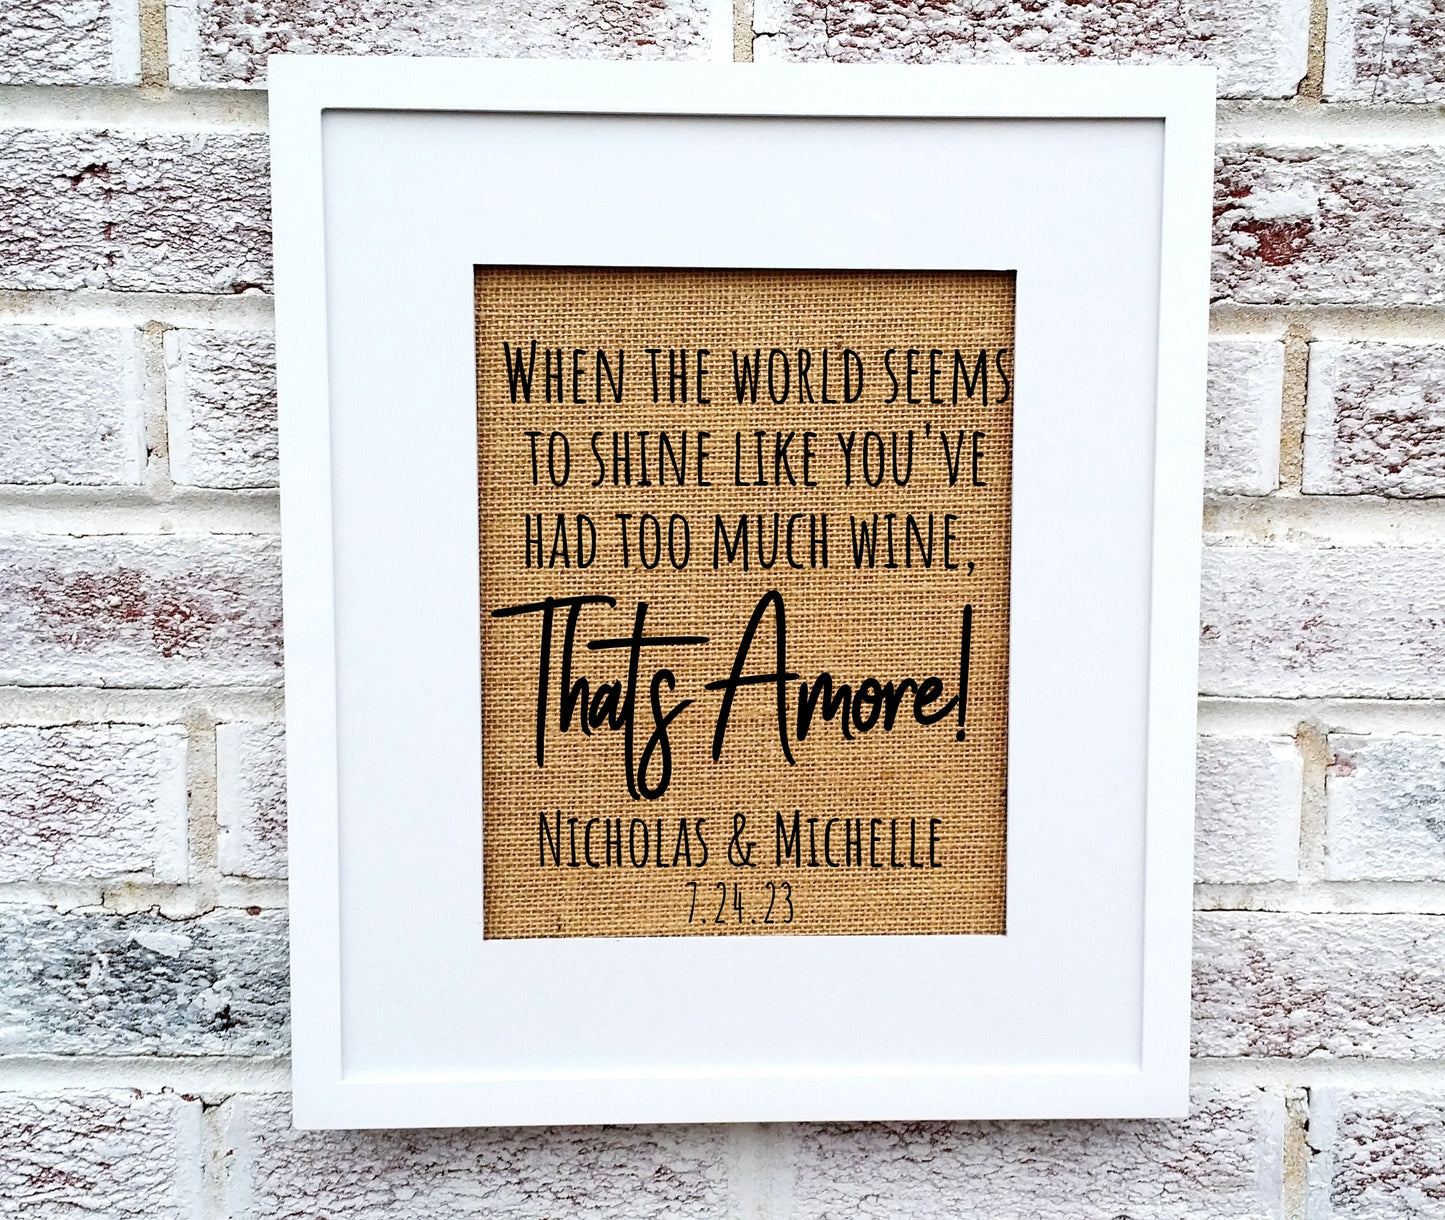 When the world seems
to shine like you've
had too much wine,
Thats Amore!
Nicholas & Michelle
7.24.23